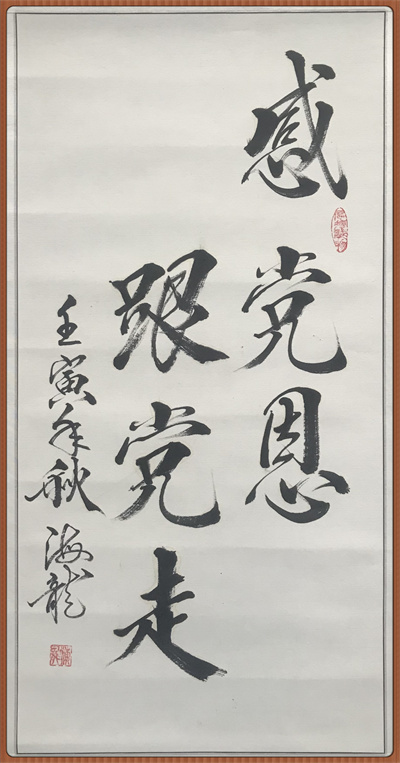 感党恩
跟党走
壬寅年秋 海龍